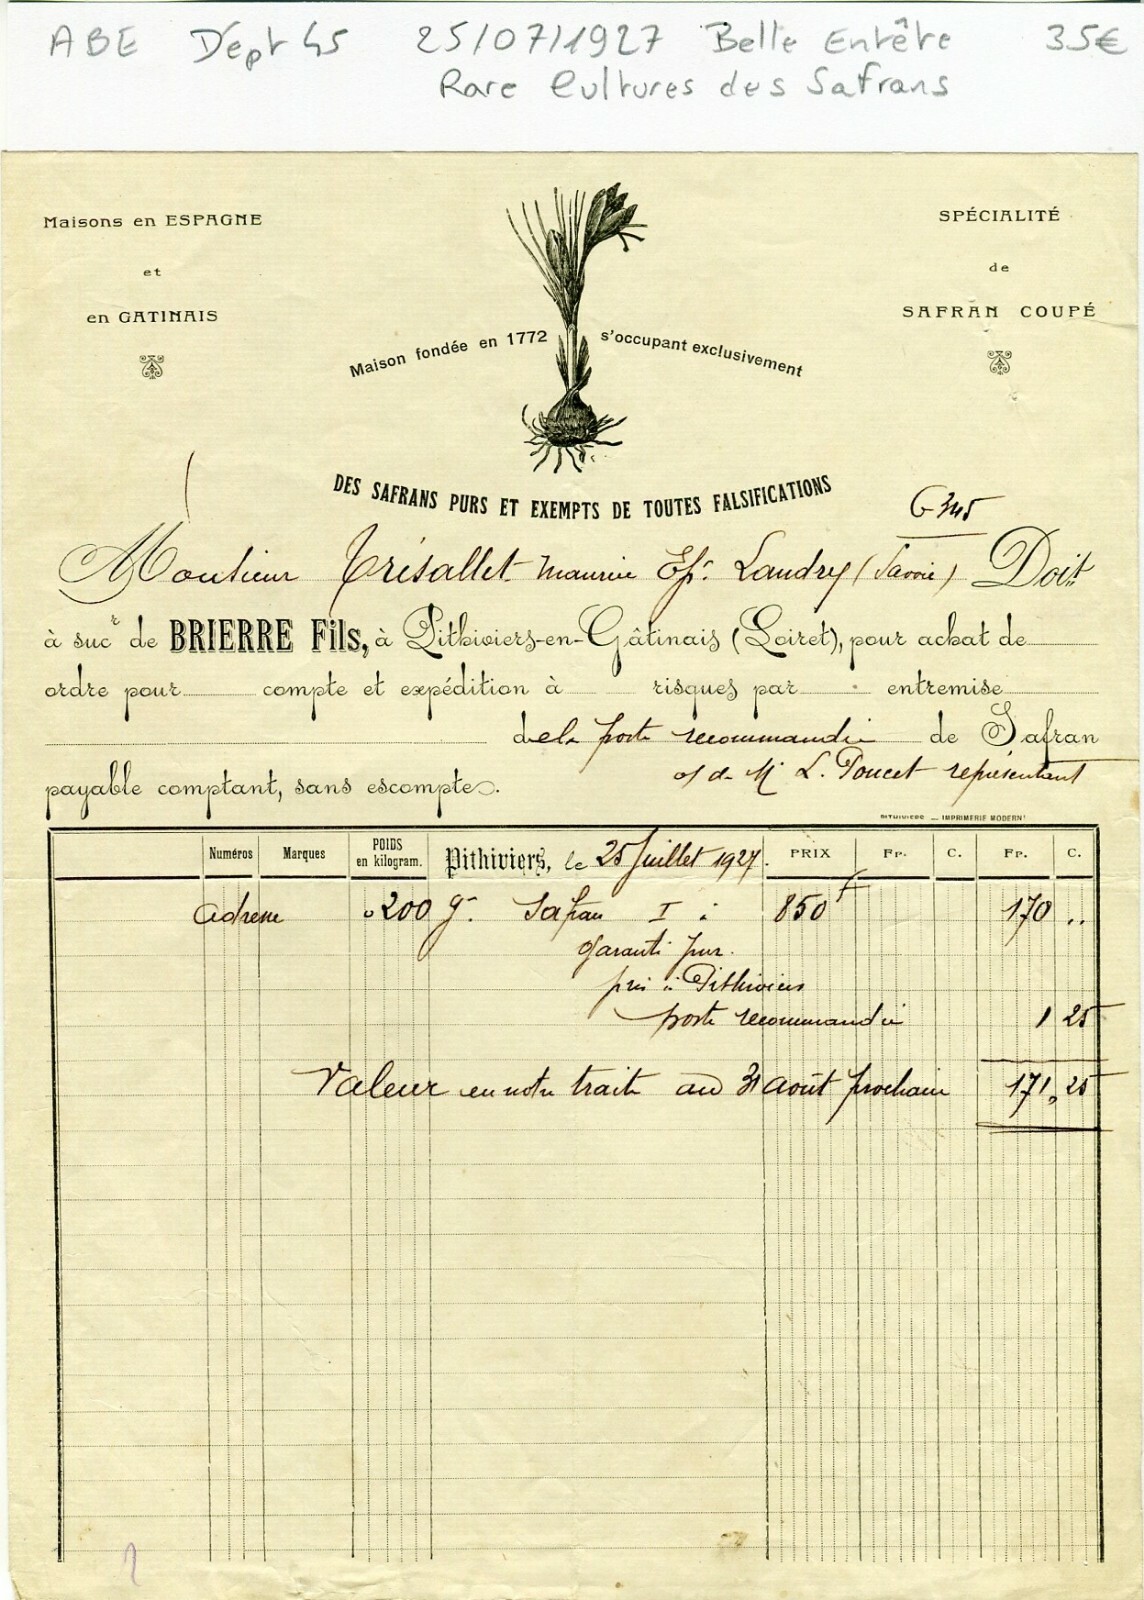 ABE Dépt 45 25/07/1927 Belle Entête 35€
Rare Cultures des Safrans
Maisons en ESPAGNE
et
en GATINAIS
SPÉCIALITÉ
de
SAFRAN COUPÉ
Maison fondée en 1772 s'occupant exclusivement
DES SAFRANS PURS ET EXEMPTS DE TOUTES FALSIFICATIONS
Monsieur Trésallet Maurice Epr. Landry (Savoie) Doit
à sucr de BRIERRE Fils, à Pithiviers-en-Gâtinais (Loiret), pour achat de
ordre pour compte et expédition à risques par entremise
de la poste recommandée de Safran
payable comptant, sans escompte.
o/ de Mr L. Poucet représentant
PITHIVIERS — IMPRIMERIE MODERNE
Numéros Marques POIDS en kilogram. Pithiviers, le 25 Juillet 1927. PRIX Fr. C. Fr. C.
adresse 0 200 gr. Safran I à 850f 170 ..
garanti pur.
pris à Pithiviers
poste recommandée 1 25
Valeur en notre traite au 31 août prochain 171,25